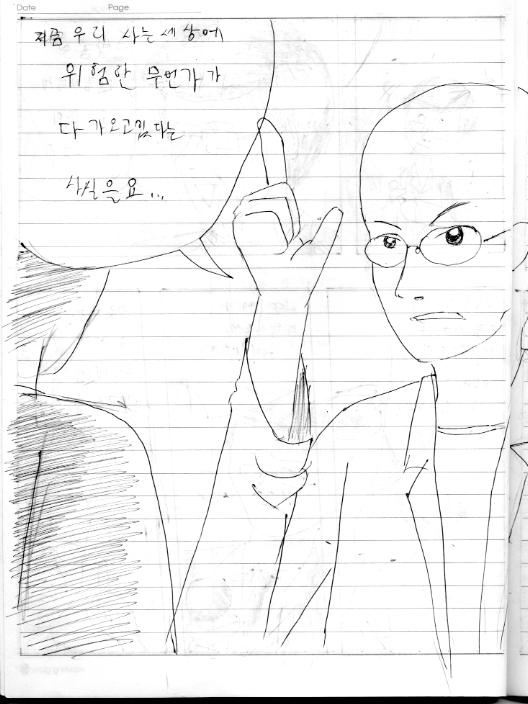 Date Page
지금 우리 사는 세상에
위험한 무언가가
다가오고있다는
사실을요...